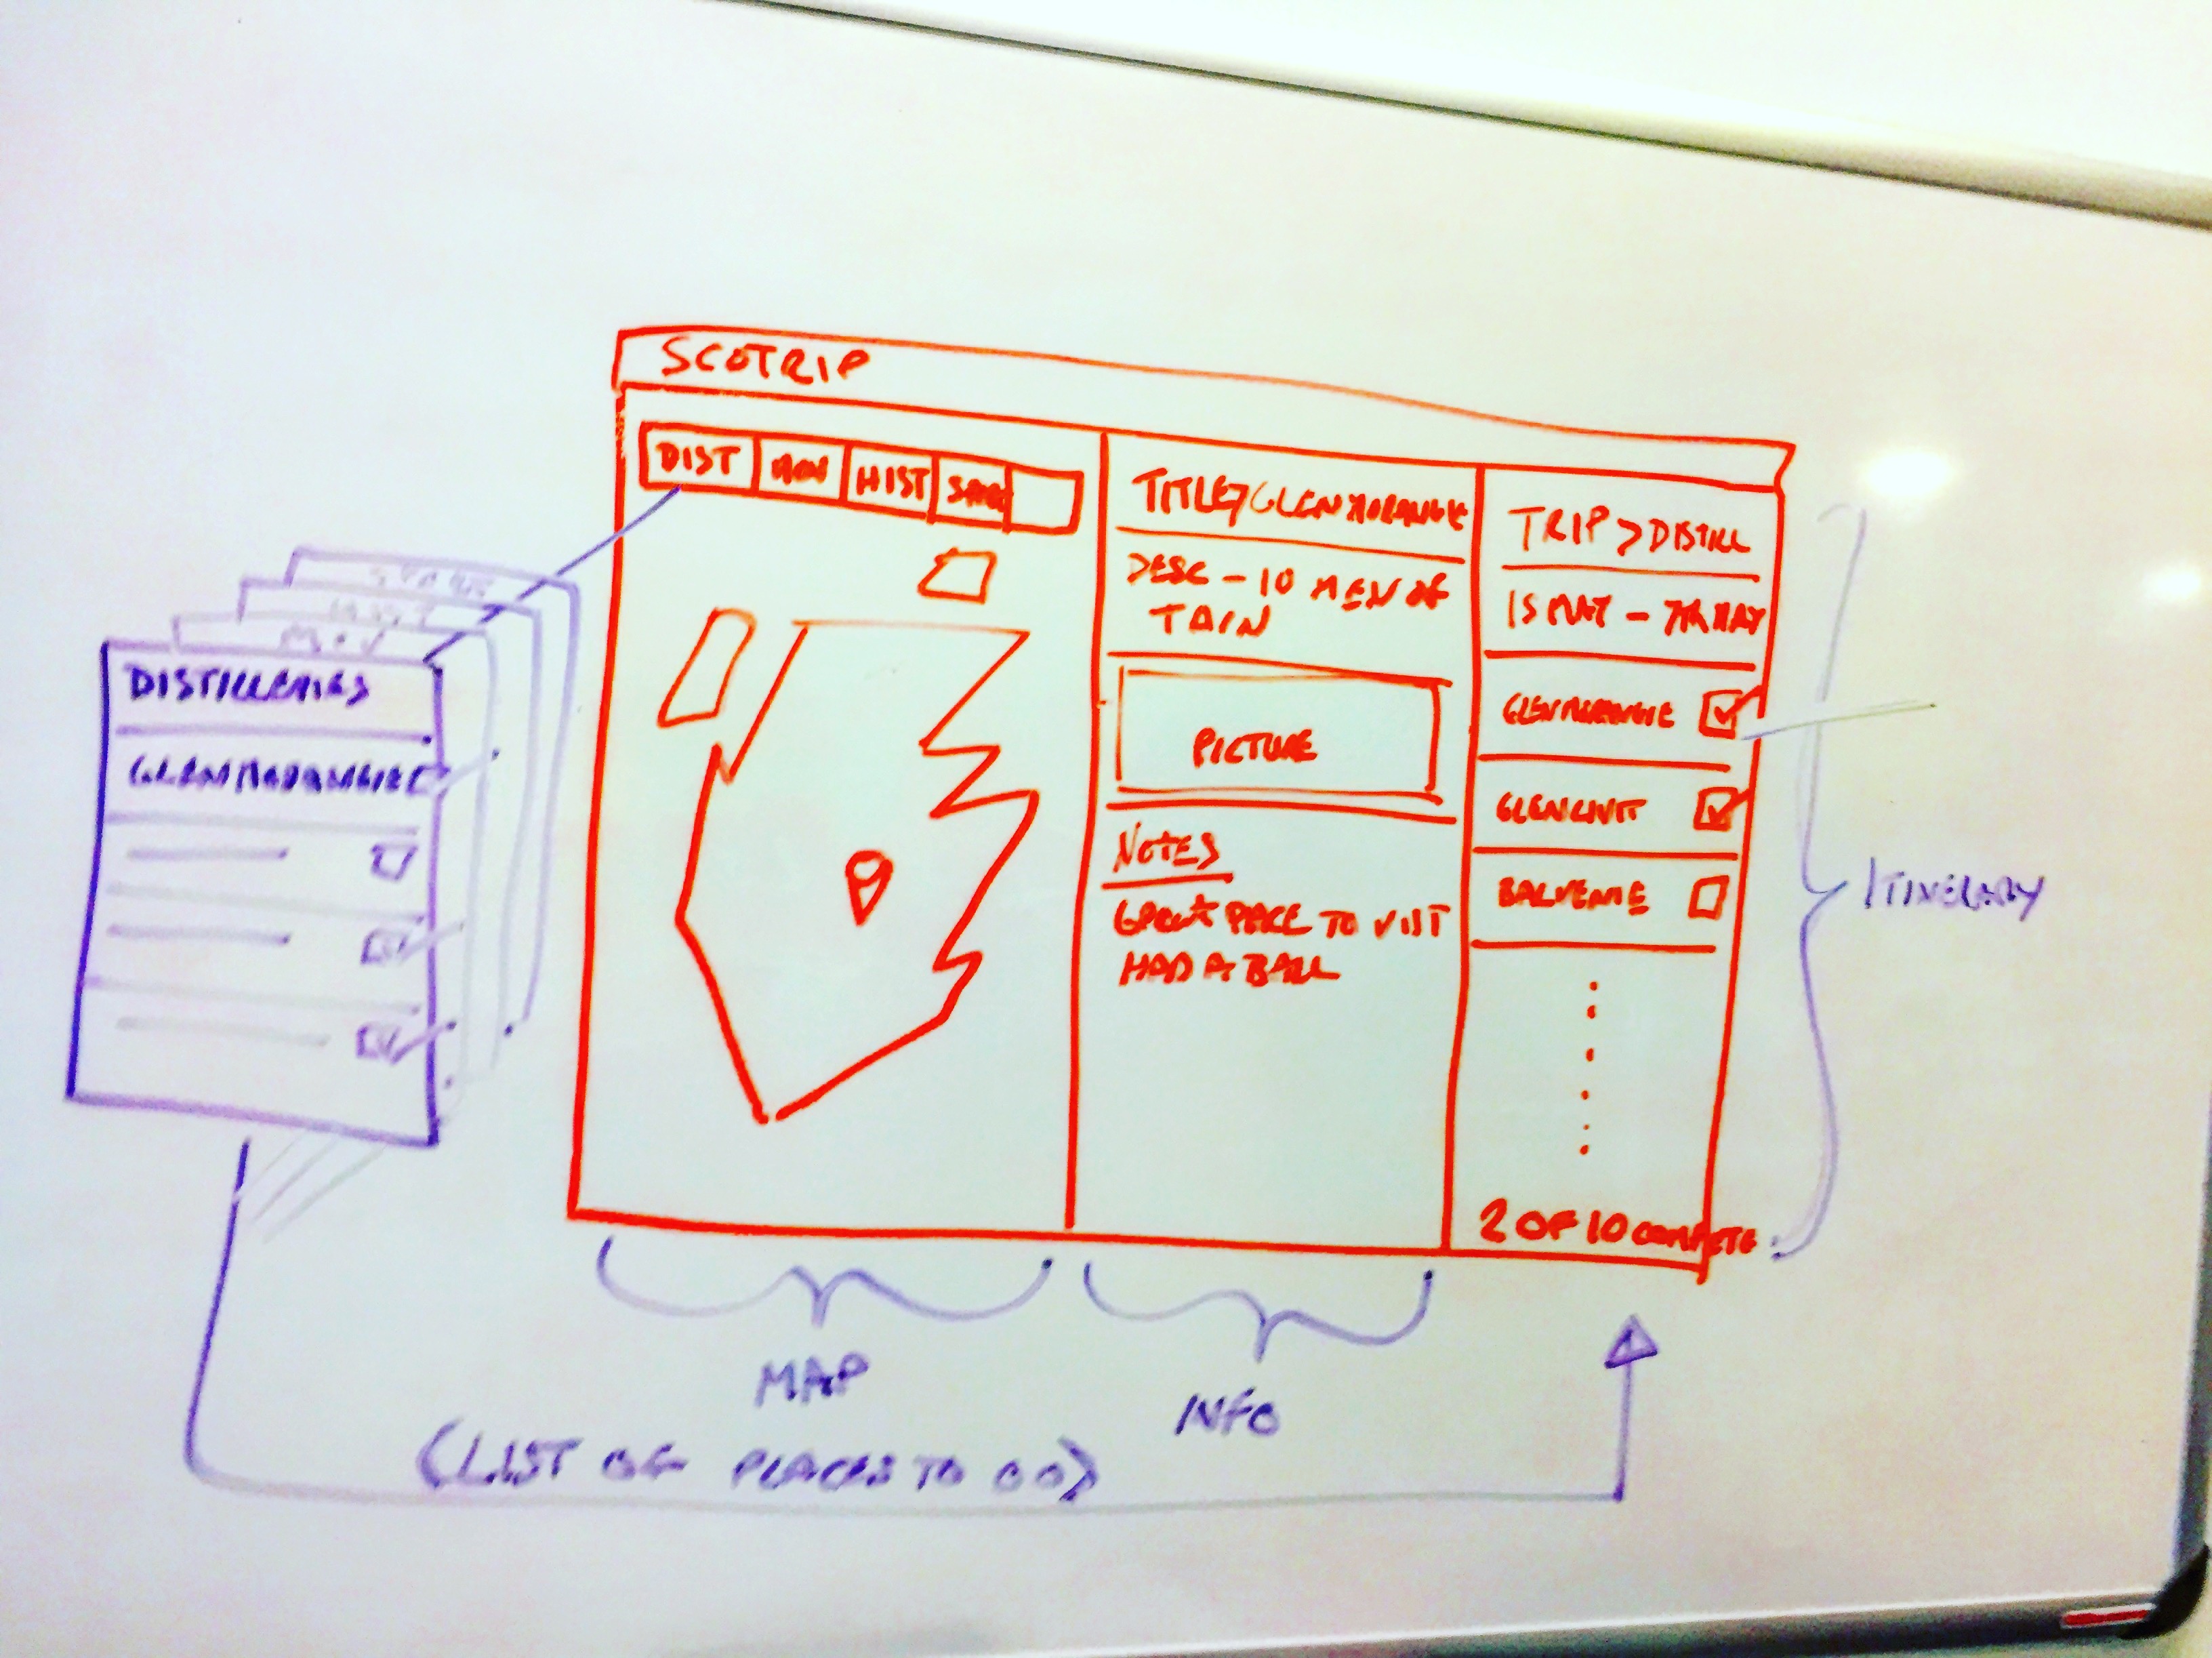 SCOTRIP
DIST
HIST
TITLE > GLENMORANGIE
DESC - 10 MEN OF
TAIN
PICTURE
NOTES
GREAT PLACE TO VISIT
HAD A BALL
TRIP > DISTILL
1ST MAY - 7TH MAY
GLENMORANGIE
GLENLIVIT
BALVENIE
2 OF 10 COMPLETE
DISTILLERIES
GLENMORANGIE
ITINERARY
MAP
INFO
(LIST OF PLACES TO GO)